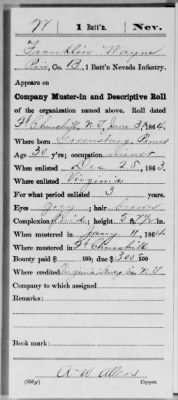 W | 1 Batt'n. | Nev.
Franklin Wayne
Co. B, 1 Batt'n Nevada Infantry.
Appears on
Company Muster-in and Descriptive Roll
of the organization named above. Roll dated
Ft Churchill, N.T. June 30, 1864.
Where born Greensburg,
Age 30 y'rs; occupation Miner
When enlisted Dec 28, 1863.
Where enlisted Virginia
For what period enlisted 3 years.
Eyes gray; hair brown
Complexion; height 5 ft. in.
When mustered in Jany 11, 1864.
Where mustered in Ft Churchill
Bounty paid $ 100; due $ 300 100
Where credited Virginia Co. N.T.
Company to which assigned
Remarks:
Book mark:
(356g)
Copyist.